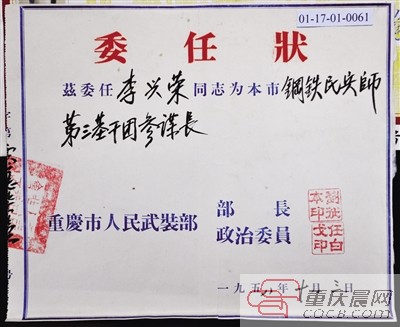 01-17-01-0061
委任狀
茲委任李兴荣同志为本市鋼铁民兵師
第三基干团参謀長
重慶市人民武裝部
部長
政治委員
一九五八年十月三日
重庆晨网
CQCB.COM